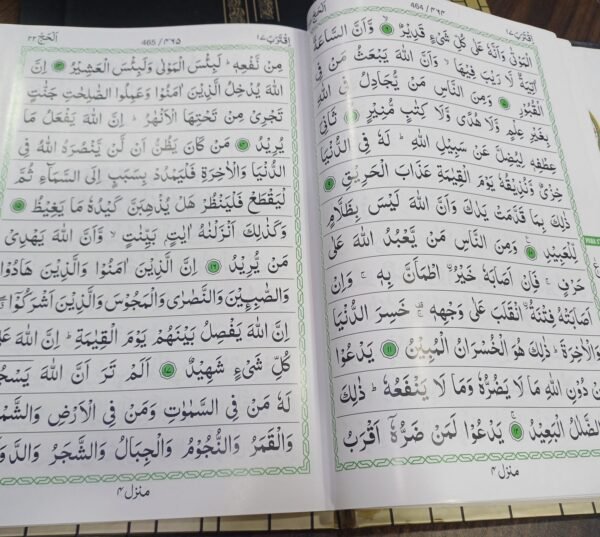 اِقْتَرَبَ ١٧ 464 / ٤٦٤ اَلْحَجّ
الْمَوْتٰى وَاَنَّهٗ عَلٰى كُلِّ شَىْءٍ قَدِيْرٌ ۙ ٦ وَّاَنَّ السَّاعَةَ
اٰتِيَةٌ لَّا رَيْبَ فِيْهَا ۙ وَاَنَّ اللّٰهَ يَبْعَثُ مَنْ فِى
الْقُبُوْرِ ٧ وَمِنَ النَّاسِ مَنْ يُّجَادِلُ فِى اللّٰهِ
بِغَيْرِ عِلْمٍ وَّلَا هُدًى وَّلَا كِتٰبٍ مُّنِيْرٍ ۙ ٨ ثَانِىَ
عِطْفِهٖ لِيُضِلَّ عَنْ سَبِيْلِ اللّٰهِ ؕ لَهٗ فِى الدُّنْيَا
خِزْىٌ وَّنُذِيْقُهٗ يَوْمَ الْقِيٰمَةِ عَذَابَ الْحَرِيْقِ ٩
ذٰلِكَ بِمَا قَدَّمَتْ يَدٰكَ وَاَنَّ اللّٰهَ لَيْسَ بِظَلَّامٍ
لِّلْعَبِيْدِ ١٠ وَمِنَ النَّاسِ مَنْ يَّعْبُدُ اللّٰهَ عَلٰى
حَرْفٍ ۚ فَاِنْ اَصَابَهٗ خَيْرُ ۨاطْمَاَنَّ بِهٖ ۚ وَاِنْ
اَصَابَتْهُ فِتْنَةُ ۨانْقَلَبَ عَلٰى وَجْهِهٖ ۚ خَسِرَ الدُّنْيَا
وَالْاٰخِرَةَ ؕ ذٰلِكَ هُوَ الْخُسْرَانُ الْمُبِيْنُ ١١ يَدْعُوْا
مِنْ دُوْنِ اللّٰهِ مَا لَا يَضُرُّهٗ وَمَا لَا يَنْفَعُهٗ ؕ ذٰلِكَ
الضَّلٰلُ الْبَعِيْدُ ۚ ١٢ يَدْعُوْا لَمَنْ ضَرُّهٗۤ اَقْرَبُ
منزل ٤
اِقْتَرَبَ ١٧ 465 / ٤٦٥ اَلْحَجّ ٢٢
مِنْ نَّفْعِهٖ ؕ لَبِئْسَ الْمَوْلٰى وَلَبِئْسَ الْعَشِيْرُ ١٣ اِنَّ
اللّٰهَ يُدْخِلُ الَّذِيْنَ اٰمَنُوْا وَعَمِلُوا الصّٰلِحٰتِ جَنّٰتٍ
تَجْرِىْ مِنْ تَحْتِهَا الْاَنْهٰرُ ؕ اِنَّ اللّٰهَ يَفْعَلُ مَا
يُرِيْدُ ١٤ مَنْ كَانَ يَظُنُّ اَنْ لَّنْ يَّنْصُرَهُ اللّٰهُ فِى
الدُّنْيَا وَالْاٰخِرَةِ فَلْيَمْدُدْ بِسَبَبٍ اِلَى السَّمَآءِ ثُمَّ
لْيَقْطَعْ فَلْيَنْظُرْ هَلْ يُذْهِبَنَّ كَيْدُهٗ مَا يَغِيْظُ ١٥
وَكَذٰلِكَ اَنْزَلْنٰهُ اٰيٰتٍۢ بَيِّنٰتٍ ۙ وَّاَنَّ اللّٰهَ يَهْدِىْ
مَنْ يُّرِيْدُ ١٦ اِنَّ الَّذِيْنَ اٰمَنُوْا وَالَّذِيْنَ هَادُوْا
وَالصّٰبِـِٕيْنَ وَالنَّصٰرٰى وَالْمَجُوْسَ وَالَّذِيْنَ اَشْرَكُوْۤا
اِنَّ اللّٰهَ يَفْصِلُ بَيْنَهُمْ يَوْمَ الْقِيٰمَةِ ؕ اِنَّ اللّٰهَ عَلٰى
كُلِّ شَىْءٍ شَهِيْدٌ ١٧ اَلَمْ تَرَ اَنَّ اللّٰهَ يَسْجُ
لَهٗ مَنْ فِى السَّمٰوٰتِ وَمَنْ فِى الْاَرْضِ وَالشَّمْ
وَالْقَمَرُ وَالنُّجُوْمُ وَالْجِبَالُ وَالشَّجَرُ وَالدَّوَ
منزل ٤